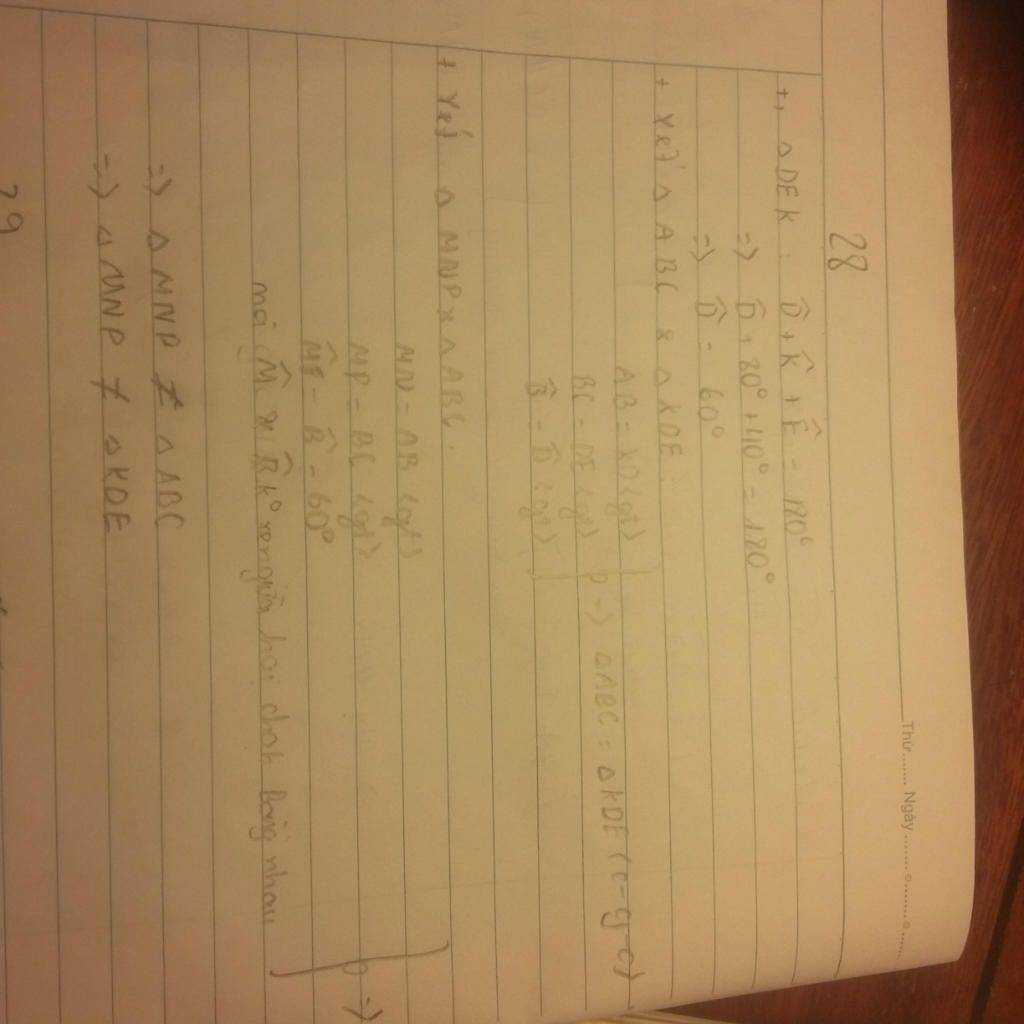 Thứ....... Ngày ........o........o......
28
+, △DEK : D̂ + K̂ + Ê = 180°
=> D̂ + 80° + 40° = 180°
=> D̂ = 60°
+ Xét △ABC & △KDE:
AB = KD (gt)
BC = DE (gt) } => △ABC = △KDE (c-g-c)
B̂ = D̂ (gt)
+ Xét △MNP & △ABC.
MN = AB (gt)
MP = BC (gt)
B̂ = 60° } =>
mà M̂ & B̂ k° xen giữa hai cạnh bằng nhau
=> △MNP ≠ △ABC
=> △MNP ≠ △KDE
29